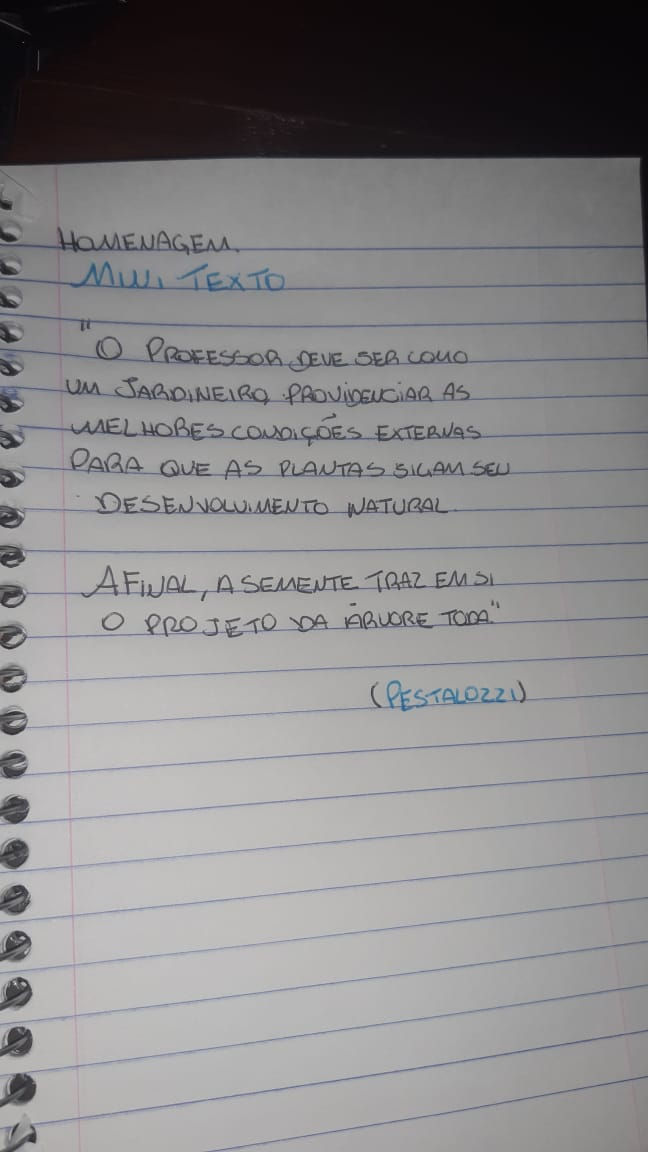 HOMENAGEM.
MINI TEXTO
"O PROFESSOR DEVE SER COMO
UM JARDINEIRO, PROVIDENCIAR AS
MELHORES CONDIÇÕES EXTERNAS
PARA QUE AS PLANTAS SIGAM SEU
DESENVOLVIMENTO NATURAL.
AFINAL, A SEMENTE TRAZ EM SI
O PROJETO DA ÁRVORE TODA."
(PESTALOZZI)